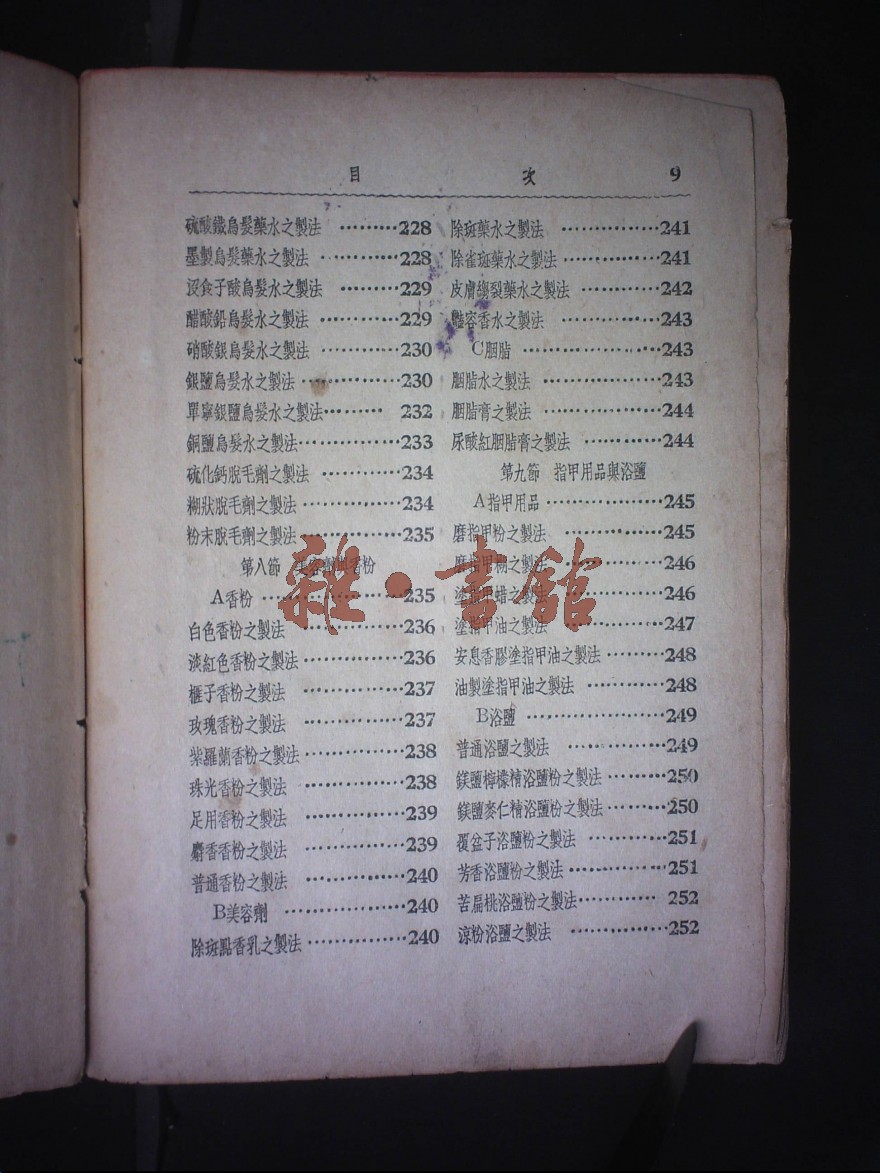 目 次 9
硫酸鐵烏髮藥水之製法 ………228
墨製烏髮藥水之製法 …………228
沒食子酸烏髮水之製法 ………229
醋酸鉛烏髮水之製法 …………229
硝酸銀烏髮水之製法 …………230
銀鹽烏髮水之製法……………230
單寧銀鹽烏髮水之製法……… 232
銅鹽烏髮水之製法……………233
硫化鈣脫毛劑之製法 …………234
糊狀脫毛劑之製法 ……………234
粉末脫毛劑之製法 ……………235
第八節 美容劑與香粉
A香粉 …………………235
白色香粉之製法 ………………236
淡紅色香粉之製法 ……………236
榧子香粉之製法 ………………237
玫瑰香粉之製法 ………………237
紫羅蘭香粉之製法 ……………238
珠光香粉之製法 ………………238
足用香粉之製法 ………………239
麝香香粉之製法 ………………239
普通香粉之製法 ………………240
B美容劑 ………………240
除斑點香乳之製法 ……………240
除斑藥水之製法 ………………241
除雀斑藥水之製法 ……………241
皮膚縐裂藥水之製法 …………242
艷容香水之製法 ………………243
C胭脂 …………………243
胭脂水之製法 …………………243
胭脂膏之製法 …………………244
尿酸紅胭脂膏之製法 …………244
第九節 指甲用品與浴鹽
A指甲用品 ……………245
磨指甲粉之製法 ………………245
磨指甲糊之製法 ………………246
塗指甲蜡之製法 ………………246
塗指甲油之製法 ………………247
安息香膠塗指甲油之製法 ……248
油製塗指甲油之製法 …………248
B浴鹽 …………………249
普通浴鹽之製法 ………………249
鎂鹽檸檬精浴鹽粉之製法 ……250
鎂鹽麥仁精浴鹽粉之製法 ……250
覆盆子浴鹽粉之製法 …………251
芳香浴鹽粉之製法 ……………251
苦扁桃浴鹽粉之製法………… 252
涼粉浴鹽之製法 ………………252
雜·書館